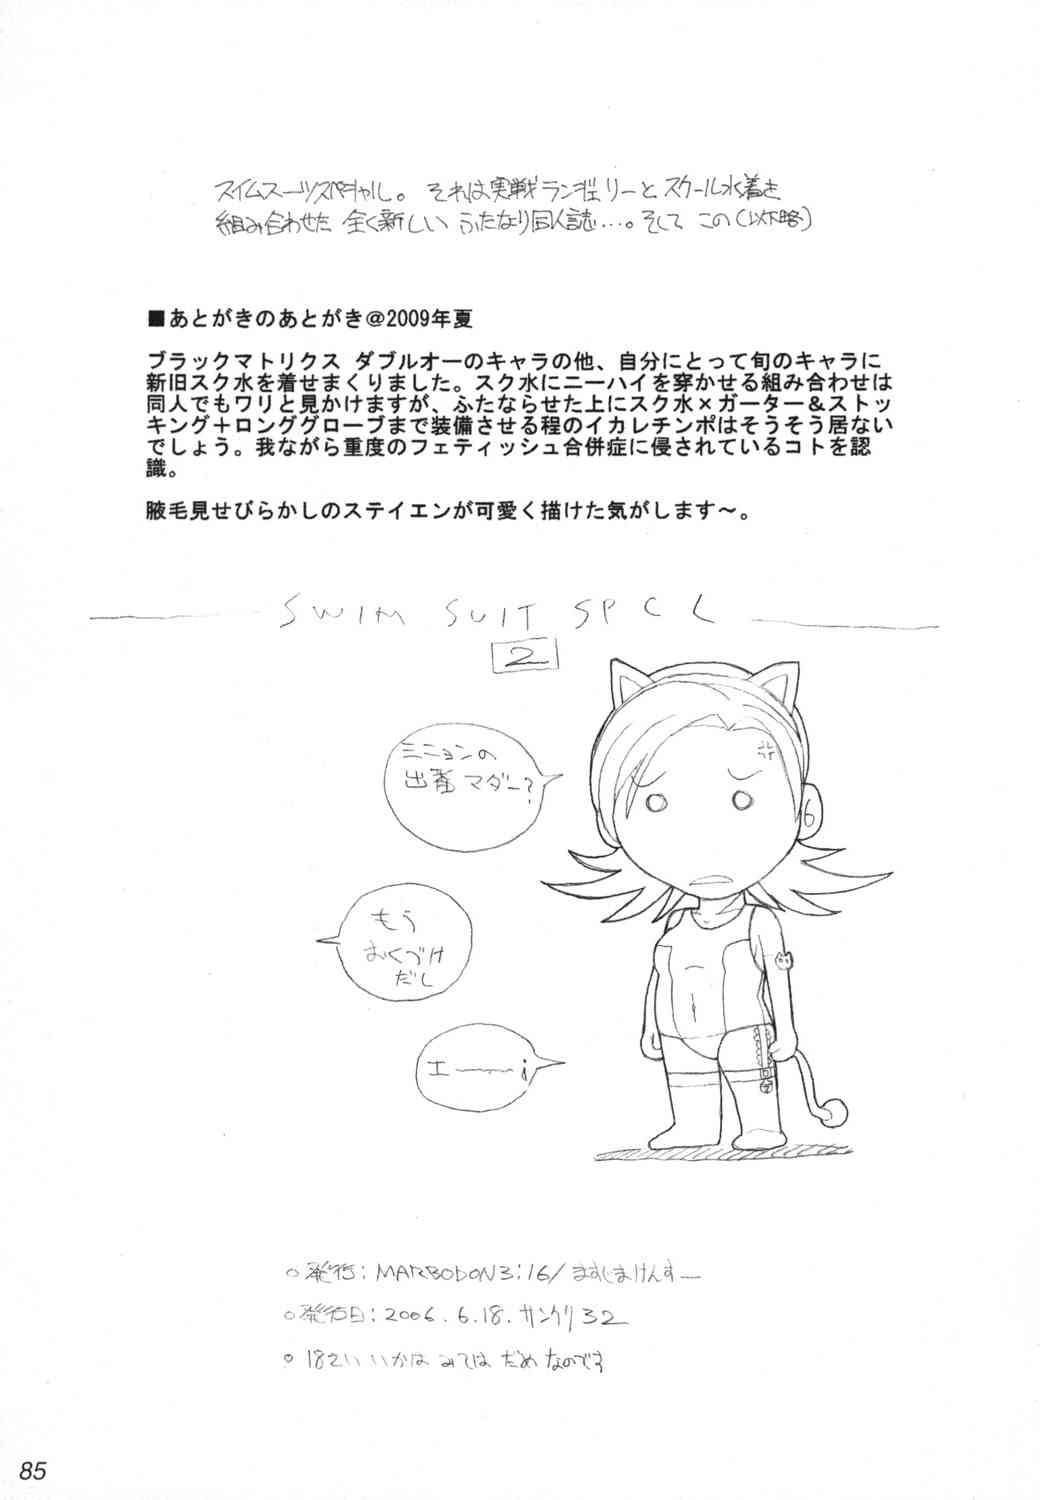 スイムスーツスペシャル。それは実戦ランジェリーとスクール水着を
組み合わせた 全く新しい ふたなり同人誌…。そして この(以下略)
■あとがきのあとがき＠2009年夏
ブラックマトリクス ダブルオーのキャラの他、自分にとって旬のキャラに
新旧スク水を着せまくりました。スク水にニーハイを穿かせる組み合わせは
同人でもワリと見かけますが、ふたならせた上にスク水×ガーター＆ストッ
キング＋ロンググローブまで装備させる程のイカレチンポはそうそう居ない
でしょう。我ながら重度のフェティッシュ合併症に侵されているコトを認
識。
腋毛見せびらかしのステイエンが可愛く描けた気がします～。
SWIM SUIT SPCL
2
ミニョンの
出番マダー?
もう
おくづけ
だし
エ――――¡
○発行：MARBODON3:16/ますじまけんすー
○発行日：2006.6.18.サンクリ32
○18さい いかは みては だめ なのです
85